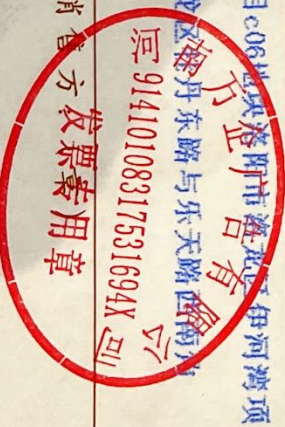 目c06地块洛阳市洛龙区伊河湾项
区牡丹东路与乐天路西南角
河南方企广告有限公司
91410108317531694X
发票专用章
销售方